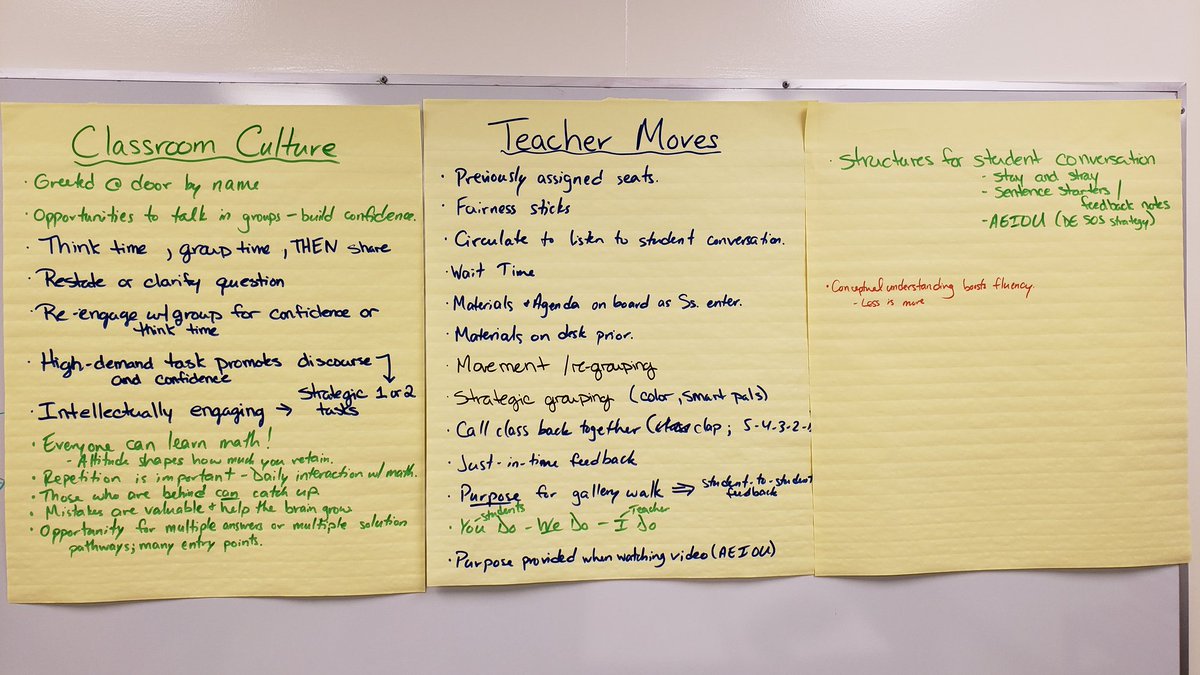 Classroom Culture
· Greeted @ door by name
· Opportunities to talk in groups - build confidence.
· Think time, group time, THEN share
· Restate or clarify question
· Re-engage w/ group for confidence or
think time
· High-demand task promotes discourse
and confidence
· Intellectually engaging → Strategic 1 or 2
tasks
· Everyone can learn math!
- Attitude shapes how much you retain.
· Repetition is important - Daily interaction w/ math.
· Those who are behind can catch up
· Mistakes are valuable + help the brain grow
· Opportunity for multiple answers or multiple solution
pathways; many entry points.
Teacher Moves
· Previously assigned seats.
· Fairness sticks
· Circulate to listen to student conversation.
· Wait Time
· Materials + Agenda on board as Ss. enter.
· Materials on desk prior.
· Movement / re-grouping
· Strategic grouping (color, smart pals)
· Call class back together (clap; 5-4-3-2-1
· Just-in-time feedback
· Purpose for gallery walk ⇒ student-to-student
feedback
students Teacher
· You Do - We Do - I Do
· Purpose provided when watching video (AEIOU)
· Structures for student conversation
- Stay and stray
- Sentence starters /
feedback notes
- AEIOU (DE SOS strategy)
· Conceptual understanding boosts fluency.
- Less is more